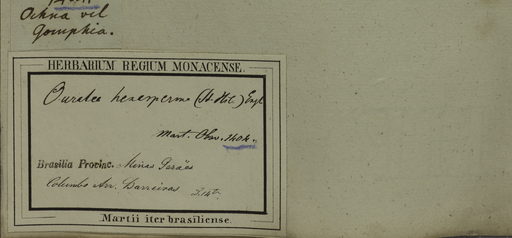 Ochna vel
Gomphia.
HERBARIUM REGIUM MONACENSE.
Ouratea hexasperma (St. Hil.) Engl
Mart. Obs. 1404.
Brasilia Provinc. Minas Geraës
Columbo Arr. Barreiras
Martii iter brasiliense.